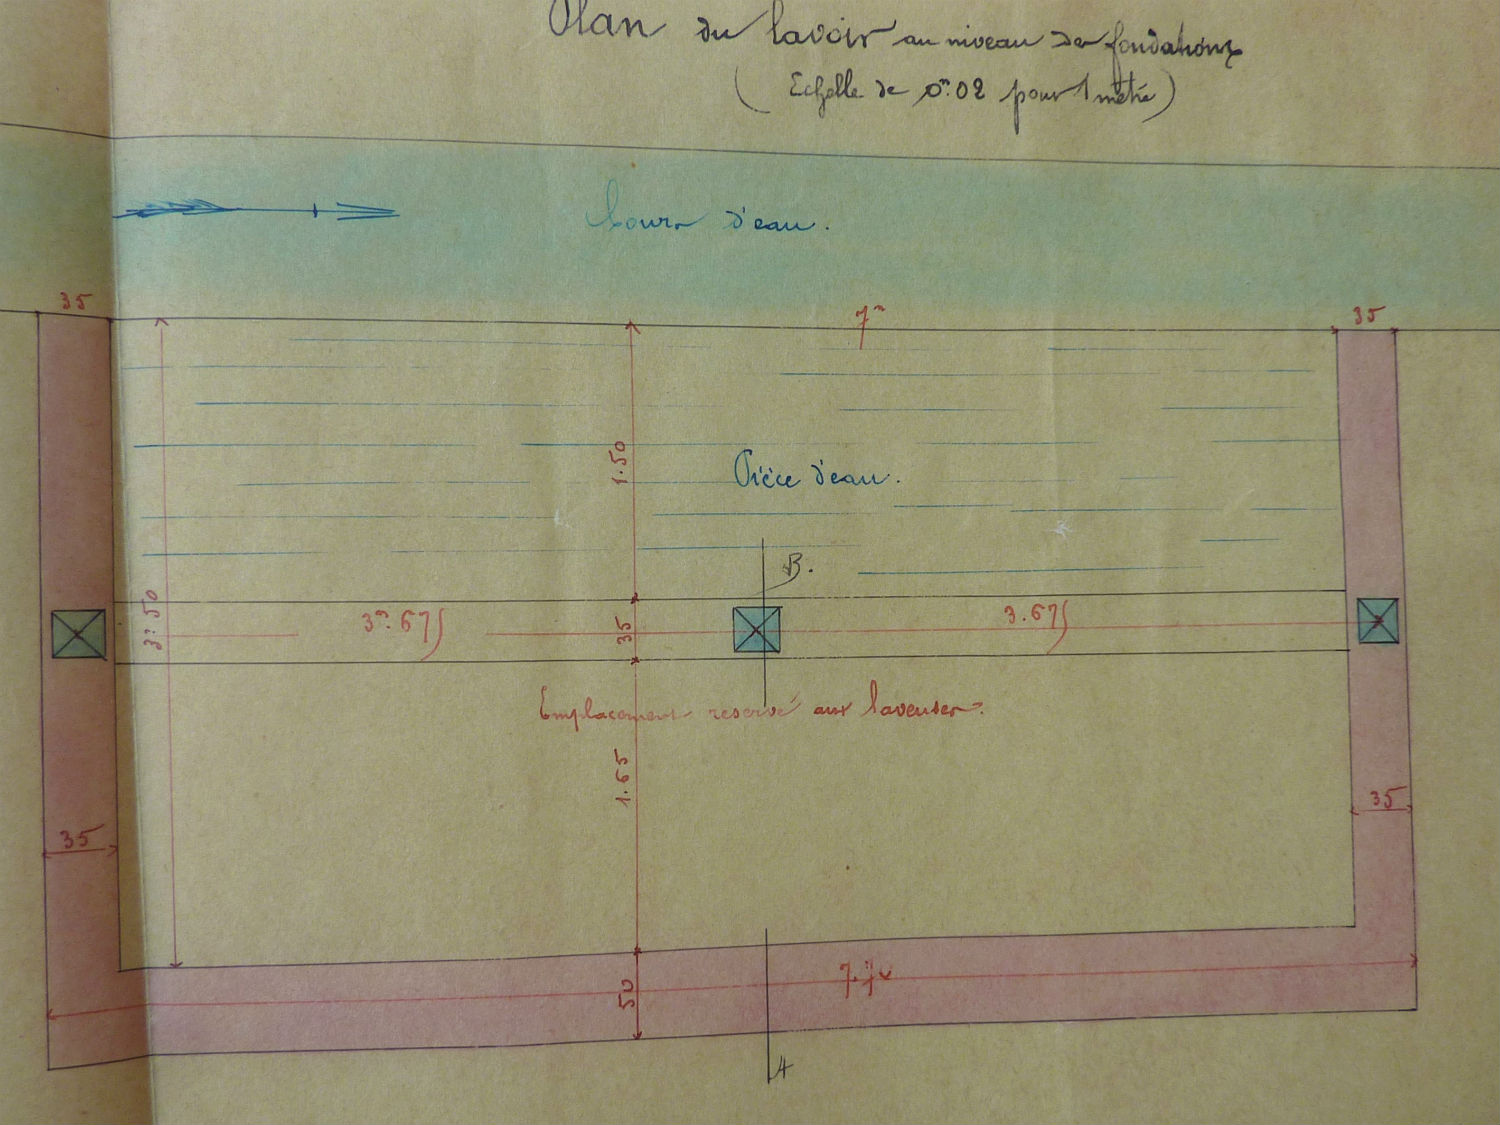 Plan du lavoir au niveau des fondations
(Echelle de 0m.02 pour 1 mètre)
Cours d'eau.
35
7m
35
1.50
Pièce d'eau.
B.
3m.50
3m.675
35
3.675
Emplacement reservé aux laveuses.
1.65
35
35
50
7.70
A